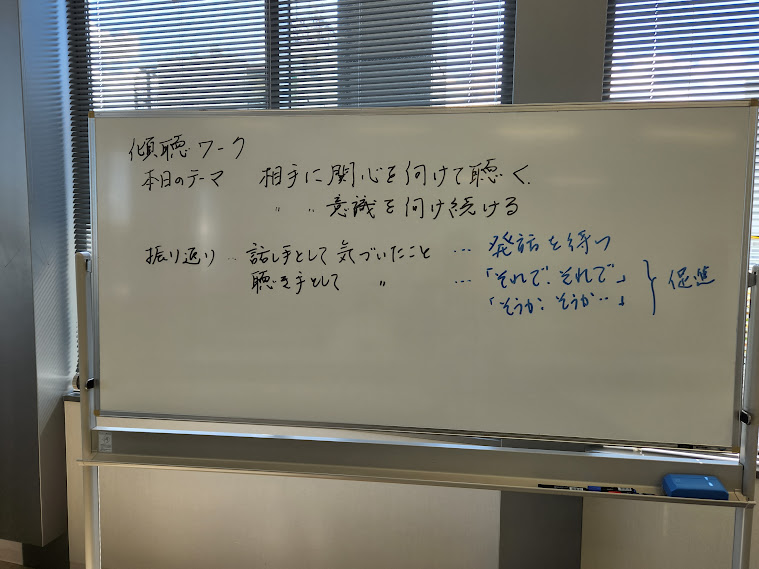 傾聴ワーク
本日のテーマ 相手に関心を向けて聴く
〃 〃 意識を向け続ける
振り返り‥話し手として気づいたこと … 発話を待つ
聴き手として 〃 …「それで、それで」 } 促進
「そうか、そうか‥」